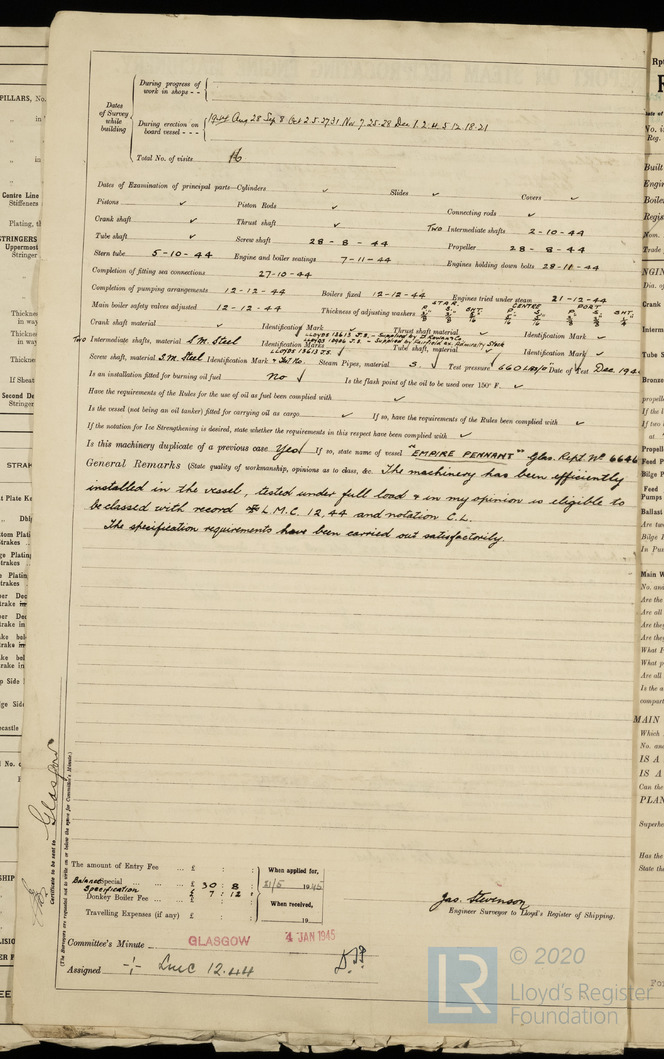 During progress of work in shops - -
Dates of Survey while building
During erection on board vessel - - -
1944 Aug 28 Sep 8 Oct 2.5.27.31 Nov 7.25.28 Dec 1.2.4.5.12.18.21
Total No. of visits 16
Dates of Examination of principal parts—Cylinders ✓ Slides ✓ Covers ✓
Pistons ✓ Piston Rods ✓ Connecting rods ✓
Crank shaft ✓ Thrust shaft ✓ TWO Intermediate shafts 2-10-44
Tube shaft ✓ Screw shaft 28-8-44 Propeller 28-8-44
Stern tube 5-10-44 Engine and boiler seatings 7-11-44 Engines holding down bolts 28-11-44
Completion of fitting sea connections 27-10-44
Completion of pumping arrangements 12-12-44 Boilers fixed 12-12-44 Engines tried under steam 21-12-44
Main boiler safety valves adjusted 12-12-44 Thickness of adjusting washers STAR. CENTRE PORT
Crank shaft material ✓ Identification Mark Thrust shaft material ✓ Identification Mark ✓
TWO Intermediate shafts, material S.M. Steel Identification Marks Tube shaft, material ✓ Identification Mark ✓
Screw shaft, material S.M. Steel Identification Mark LLOYDS 13613 J.S. Steam Pipes, material S. Test pressure 660 LBS/□" Date of Test Dec. 194
Is an installation fitted for burning oil fuel No Is the flash point of the oil to be used over 150° F. ✓
Have the requirements of the Rules for the use of oil as fuel been complied with ✓
Is the vessel (not being an oil tanker) fitted for carrying oil as cargo ✓ If so, have the requirements of the Rules been complied with ✓
If the notation for Ice Strengthening is desired, state whether the requirements in this respect have been complied with ✓
Is this machinery duplicate of a previous case Yes If so, state name of vessel "EMPIRE PENNANT" Glas. Rept. No 6646
General Remarks (State quality of workmanship, opinions as to class, &c. The machinery has been efficiently
installed in the vessel, tested under full load & in my opinion is eligible to
be classed with record L.M.C. 12,44 and notation C.L.
The specification requirements have been carried out satisfactorily.
Certificate to be sent to Glasgow
(The Surveyors are requested not to write on or below the space for Committee's Minute.)
The amount of Entry Fee ... £ : : When applied for,
Balance Special ... ... £ 30 : 8 : 1945
Specification
Donkey Boiler Fee ... £ 7 : 12 : When received,
Travelling Expenses (if any) £ : : 19
Jas. Stevenson
Engineer Surveyor to Lloyd's Register of Shipping.
Committee's Minute GLASGOW 4 JAN 1945
Assigned LMC 12.44
© 2020
LR
Lloyd's Register
Foundation